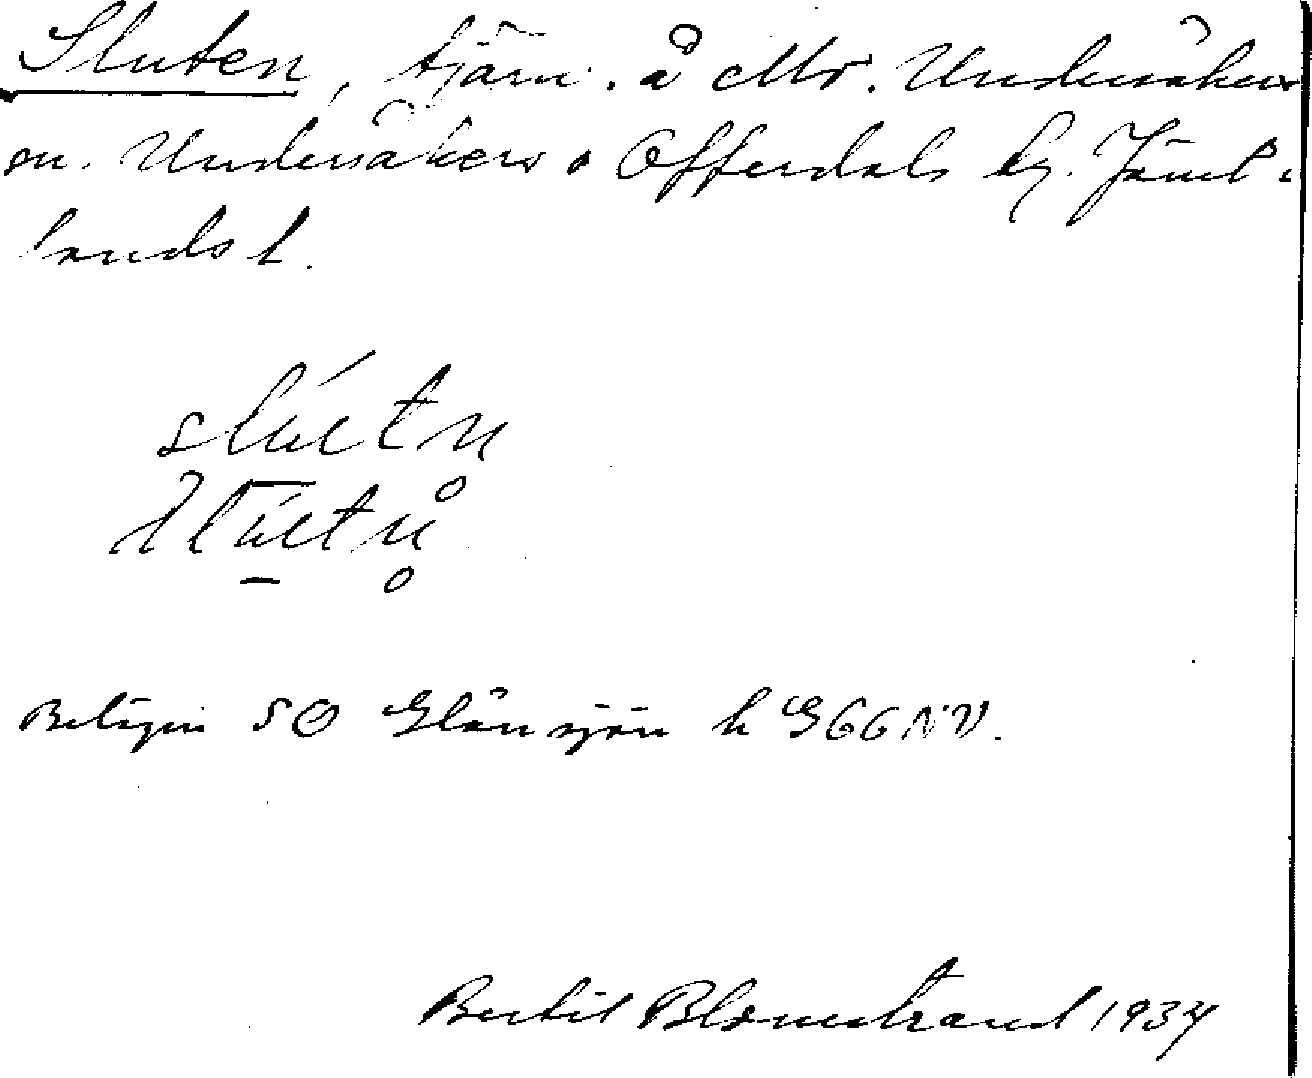 Sluten, tjärn. å Mo. Undersåkers
sn. Undersåkers o Offerdals tg. Jämt-
lands l.
slútn
Belägen SO Glänsjön k G66NV.
Bertil Blomstrand 1934